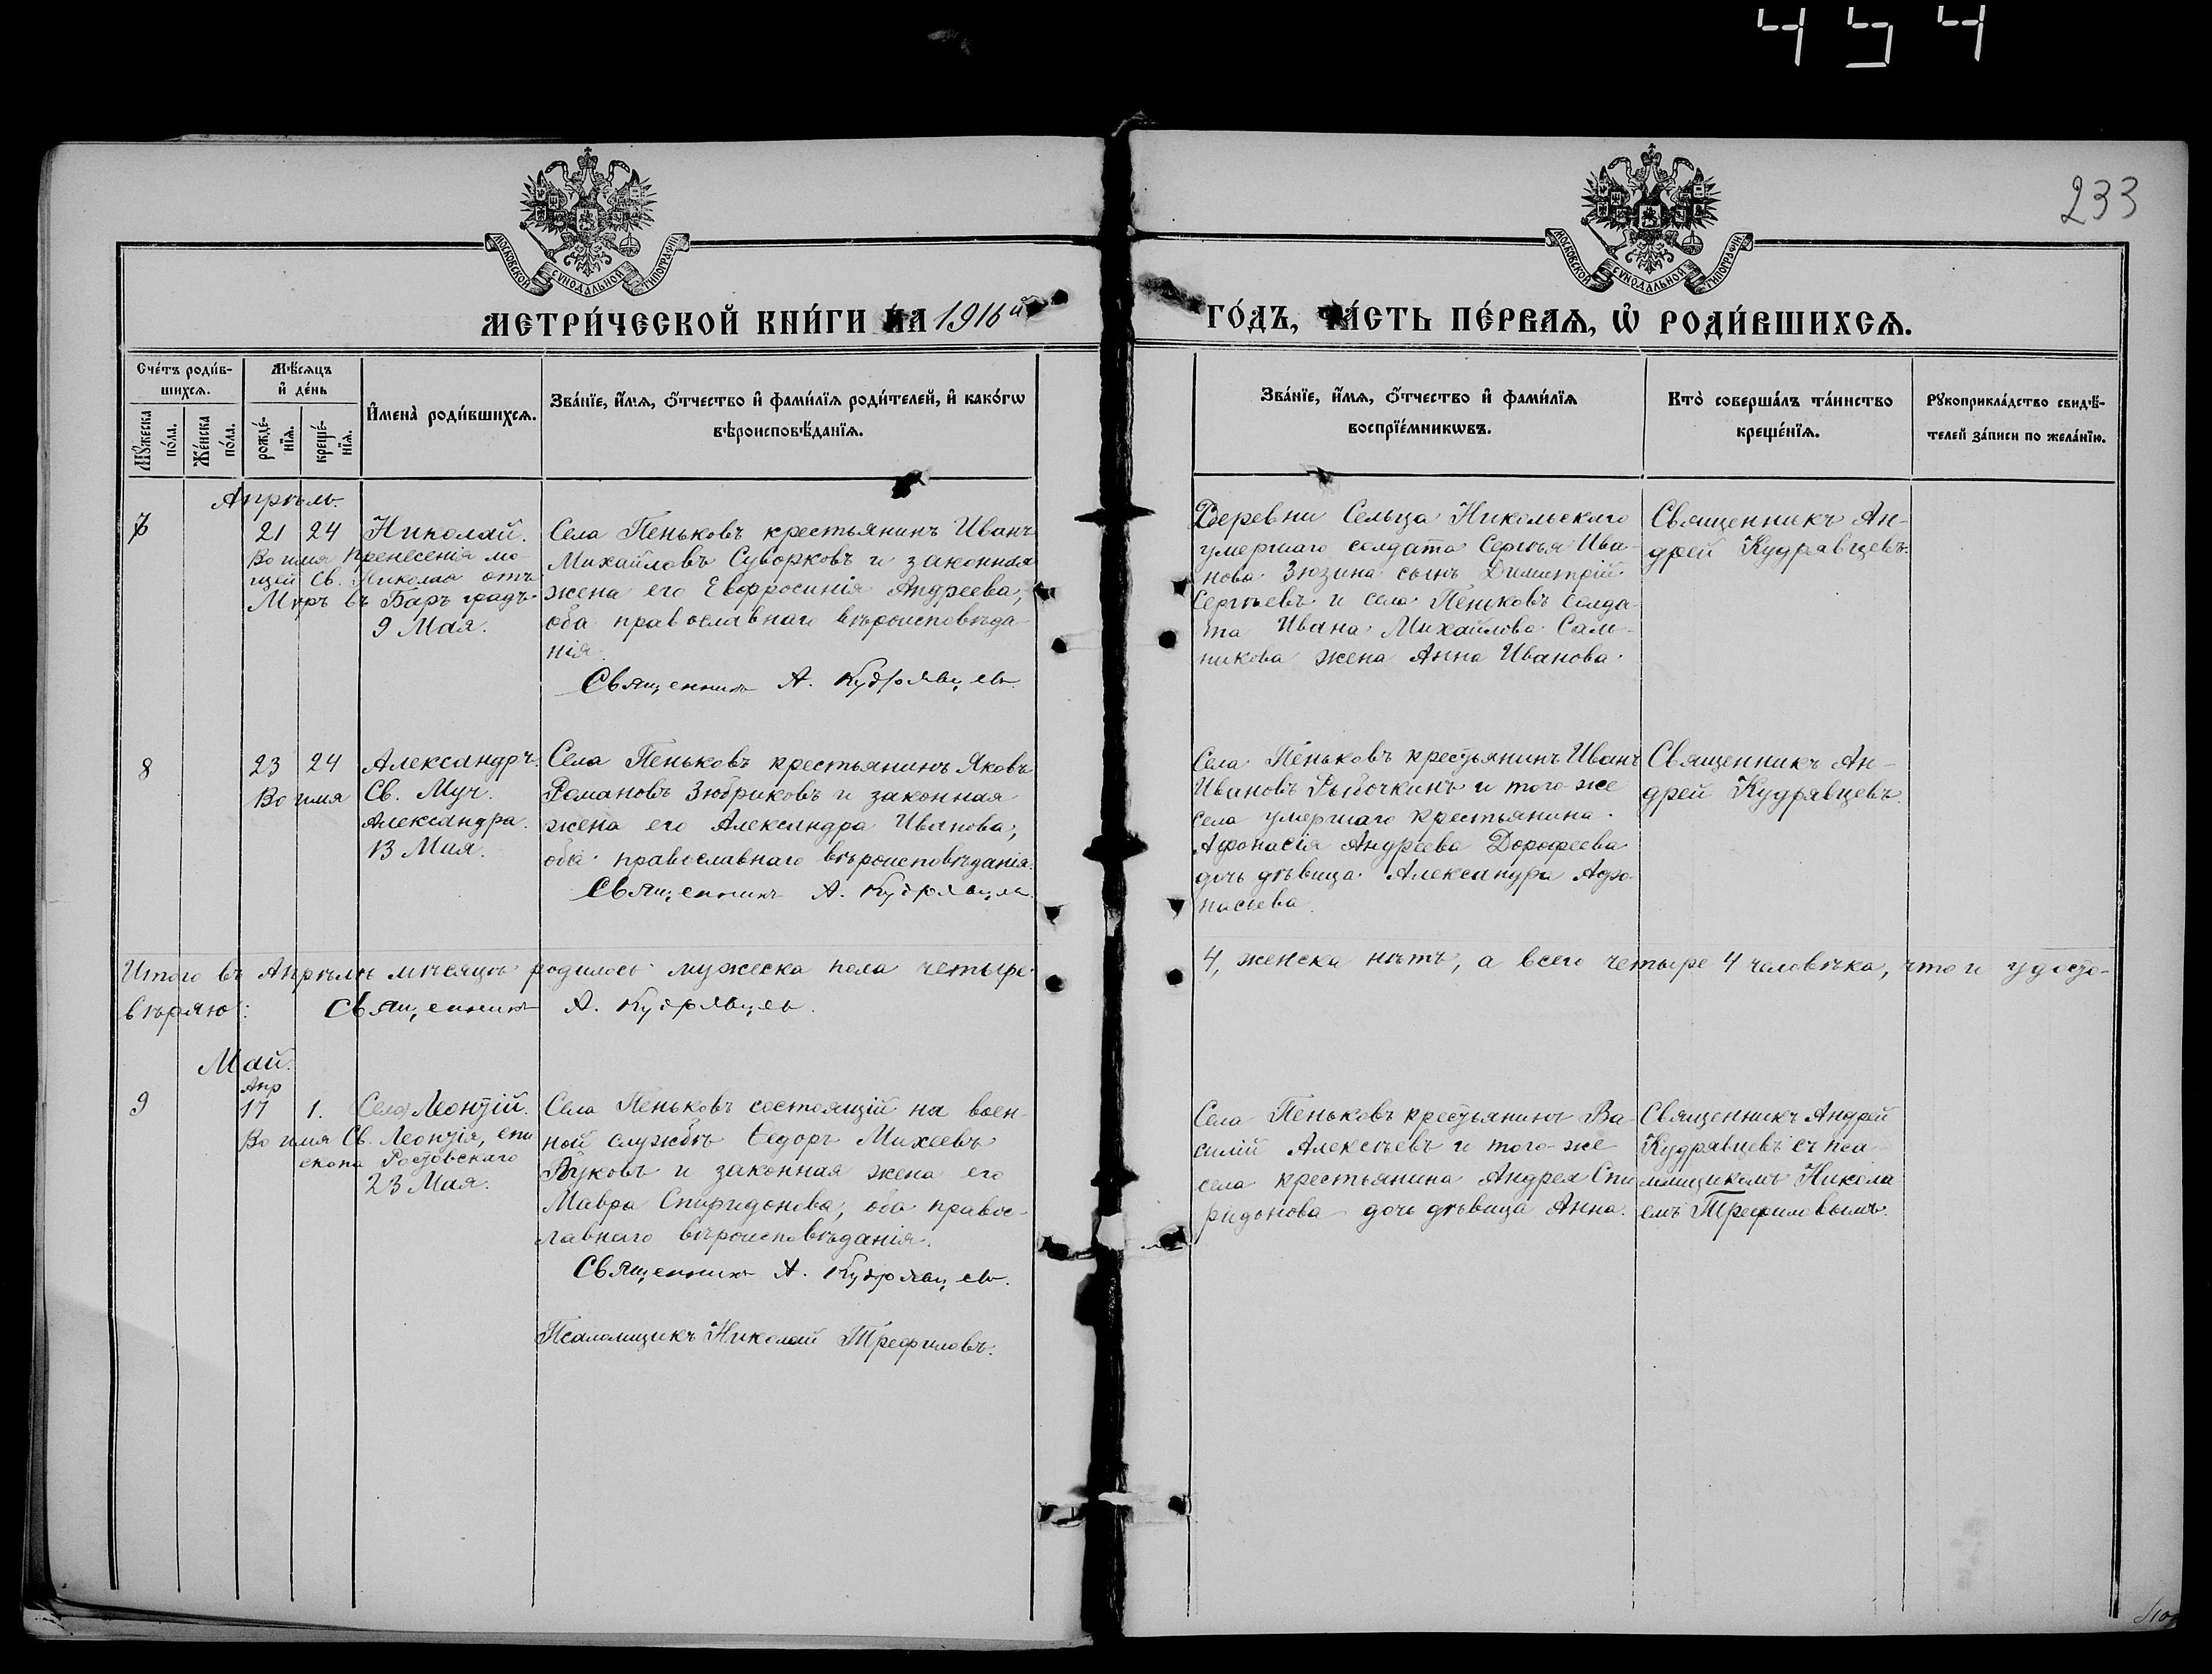 454
233
МОСКОВСКОЙ СѴНОДАЛЬНОЙ ТИПОГРАФІИ
МОСКОВСКОЙ СѴНОДАЛЬНОЙ ТИПОГРАФІИ
МЕТРИ́ЧЕСКОЙ КНИ́ГИ НА 1916й
ГО́ДЪ, ЧА́СТЬ ПЕ́РВАѦ, Ѡ҆ РОДИ́ВШИХСѦ.
Сче́тъ роди́в-
шихсѧ.
Мꙋ́жеска
по́ла.
Же́нска
по́ла.
Мѣ́сѧцъ
и҆ де́нь
рожде́-
нїѧ.
креще́-
нїѧ.
И҆мена̀ роди́вшихсѧ.
Зва́нїе, и҆́мѧ, ѻ҆́тчество и҆ фами́лїѧ роди́телей, и҆ како́гѡ
вѣроисповѣ́данїѧ.
Зва́нїе, и҆́мѧ, ѻ҆́тчество и҆ фами́лїѧ
воспрїе́мникѡвъ.
Кто̀ соверша́лъ та́инство
креще́нїѧ.
Рꙋкоприкла́дство свидѣ́-
телей за́писи по жела́нїю.
Апрѣль.
7
21 24 Николай.
Во имя Пренесенія мо-
щей Св. Николая отъ
Мѵръ въ Баръ градъ.
9 Мая.
Села Пеньковъ крестьянинъ Иванъ
Михайловъ Суворковъ и законная
жена его Евфросинія Андреева,
оба православнаго вѣроисповѣда-
нія.
Священникъ А. Кудрявцевъ.
Деревни Сельца Никольскаго
умершаго солдата Сергѣя Ива-
нова Зюзина сынъ Димитрій
Сергѣевъ и села Пеньковъ солда-
та Ивана Михайлова Саль-
никова жена Анна Иванова.
Священникъ Ан-
дрей Кудрявцевъ.
8
23 24 Александръ.
Во имя Св. Муч.
Александра.
13 Мая.
Села Пеньковъ крестьянинъ Яковъ
Романовъ Зюбриковъ и законная
жена его Александра Иванова,
оба православнаго вѣроисповѣданія.
Священникъ А. Кудрявцевъ.
Села Пеньковъ крестьянинъ Иванъ
Ивановъ Рыбочкинъ и того-же
села умершаго крестьянина
Афонасія Андреева Дорофеева
дочь дѣвица Александра Афо-
насьева.
Священникъ Ан-
дрей Кудрявцевъ.
Итого въ Апрѣлѣ мѣсяцѣ родилось мужеска пола четыре
4, женска нѣтъ, а всего четыре 4 человѣка, что и удосто-
вѣряю: Священникъ А. Кудрявцевъ.
Май.
Апр
9
17 1. Леонтій.
Во имя Св. Леонтія, епи
скопа Ростовскаго
23 Мая.
Села Пеньковъ состоящій на воен-
ной службѣ Ѳедоръ Михеевъ
Жуковъ и законная жена его
Мавра Спиридонова, оба правос-
лавнаго вѣроисповѣданія.
Священникъ А. Кудрявцевъ.
Псаломщикъ Николай Трефиловъ.
Села Пеньковъ крестьянинъ Ва-
силій Алексѣевъ и того-же
села крестьянина Андрея Спи
ридонова дочь дѣвица Анна.
Священникъ Андрей
Кудрявцевъ съ пса-
ломщикомъ Никола
емъ Трефиловымъ.